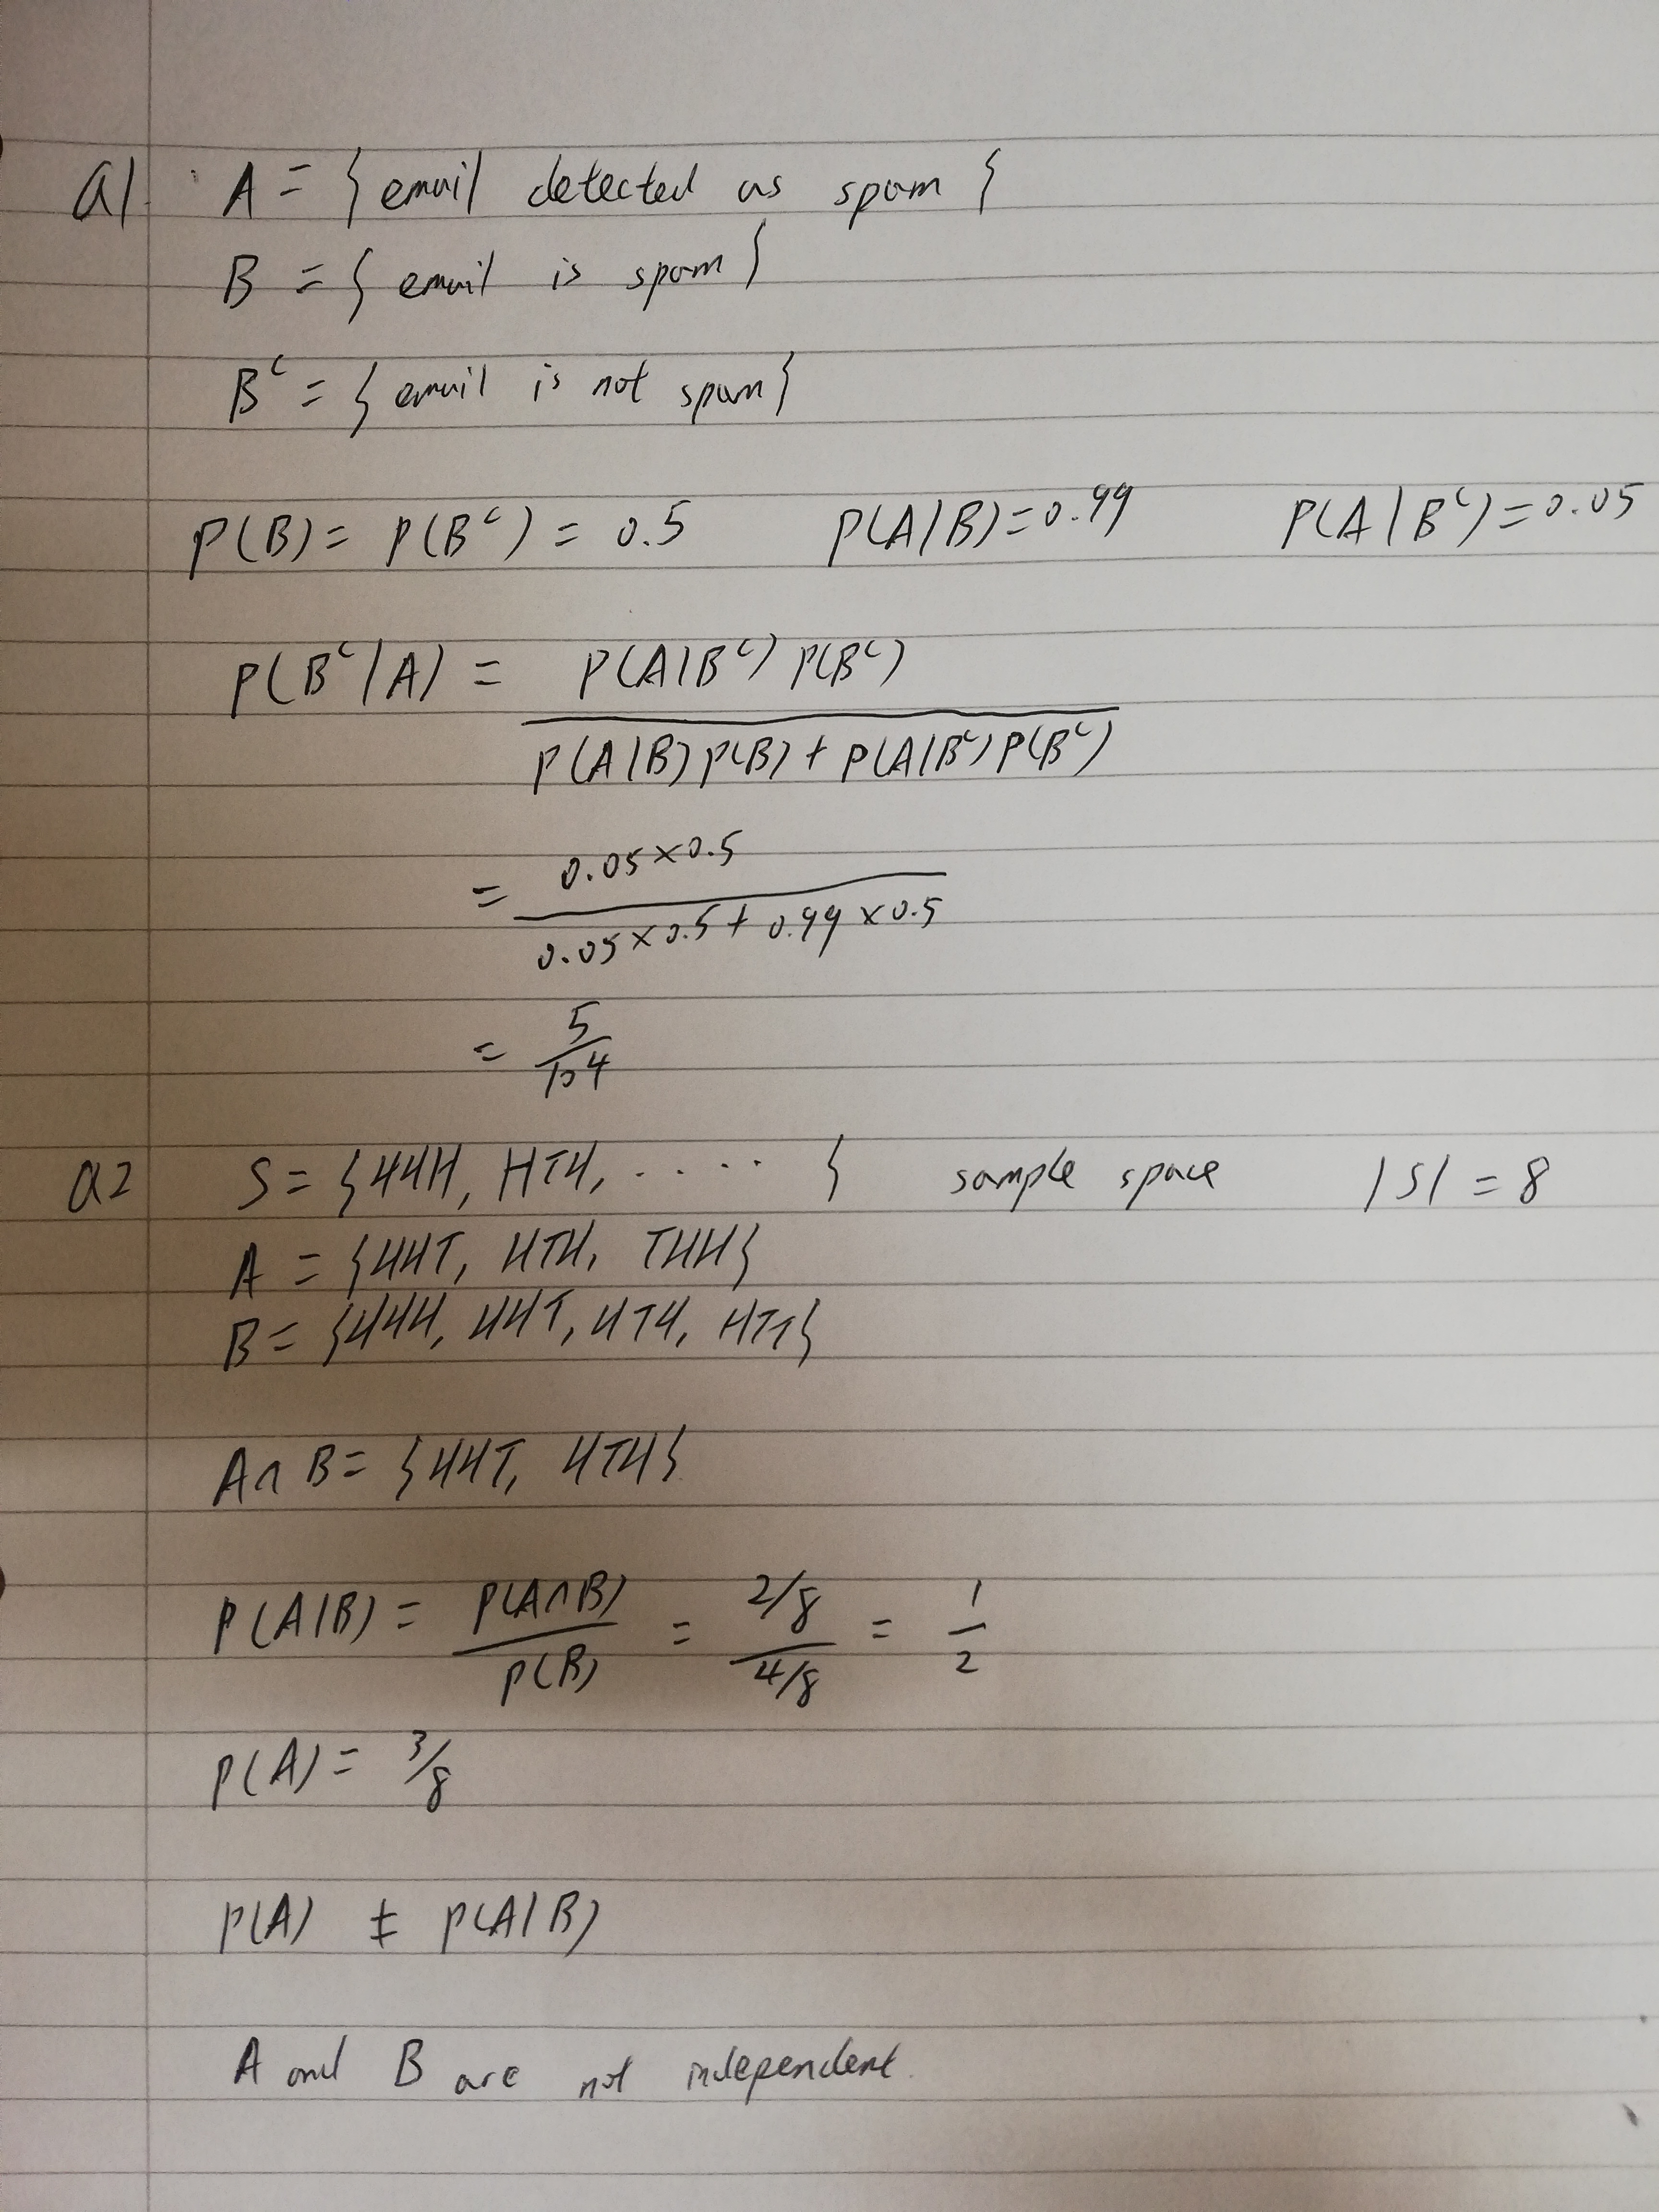 Q1. A = { email detected as spam }
B = { email is spam }
Bᶜ = { email is not spam }
P(B) = P(Bᶜ) = 0.5 P(A|B) = 0.99 P(A|Bᶜ) = 0.05
P(Bᶜ|A) = P(A|Bᶜ) P(Bᶜ)
P(A|B) P(B) + P(A|Bᶜ) P(Bᶜ)
= 0.05 × 0.5
0.05 × 0.5 + 0.99 × 0.5
= 5
104
Q2 S = { HHH, HTH, ..... } sample space |S| = 8
A = { HHT, HTH, THH }
B = { HHH, HHT, HTH, HTT }
A ∩ B = { HHT, HTH }
P(A|B) = P(A∩B) = 2/8 = 1
P(B) 4/8 2
P(A) = 3/8
P(A) ≠ P(A|B)
A and B are not independent.